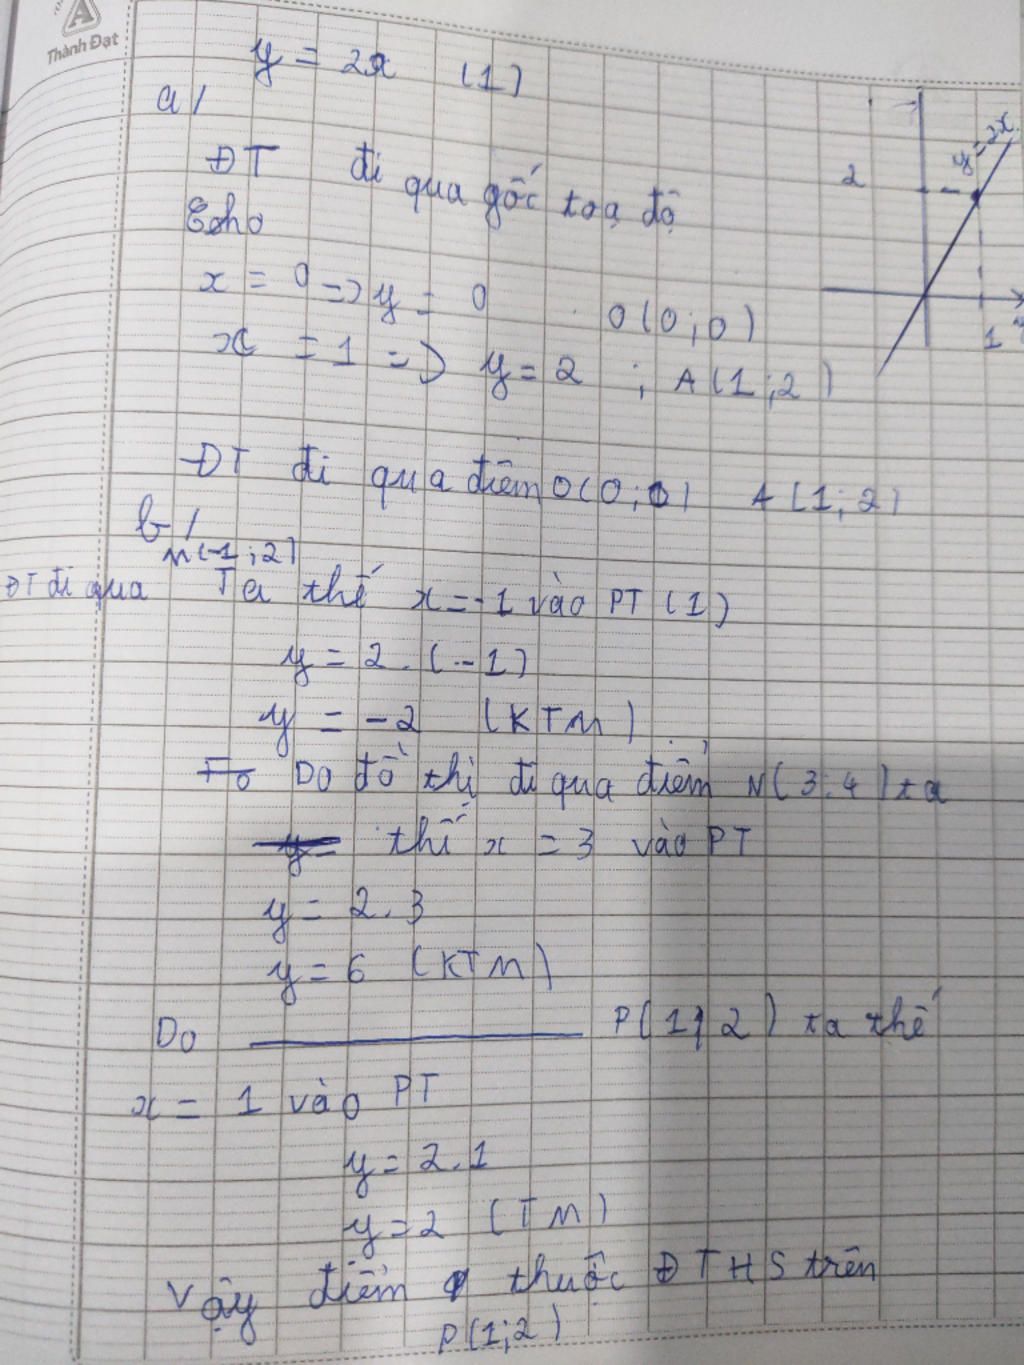 Thành Đạt
y = 2x (1)
a/
ĐT đi qua gốc toạ độ
Cho
x = 0 => y = 0 O(0;0)
x = 1 => y = 2 ; A(1;2)
y = 2x
2
1
ĐT đi qua điểm O(0;0) A(1;2)
b/
ĐT đi qua M(-1;2) Ta thế x = -1 vào PT (1)
y = 2.(-1)
y = -2 (KTM)
Do đồ thị đi qua điểm N(3;4) ta
thế x = 3 vào PT
y = 2.3
y = 6 (KTM)
Do P(1;2) ta thế
x = 1 vào PT
y = 2.1
y = 2 (TM)
Vậy điểm thuộc ĐTHS trên
P(1;2)